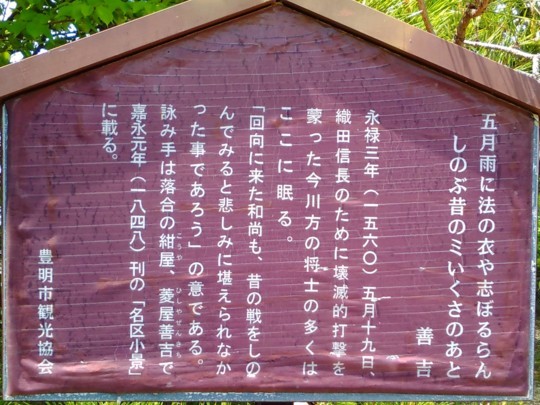 五月雨に法の衣や志ぼるらん
しのぶ昔のミいくさのあと
善吉
永禄三年（一五六〇）五月十九日、
織田信長のために壊滅的打撃を
蒙った今川方の将士の多くは
ここに眠る。
「回向に来た和尚も、昔の戦をしの
んでみると悲しみに堪えられなか
った事であろう」の意である。
詠み手は落合の紺屋、菱屋善吉で
こうや ひしやぜんきち
嘉永元年（一八四八）刊の「名区小景」
に載る。
豊明市観光協会